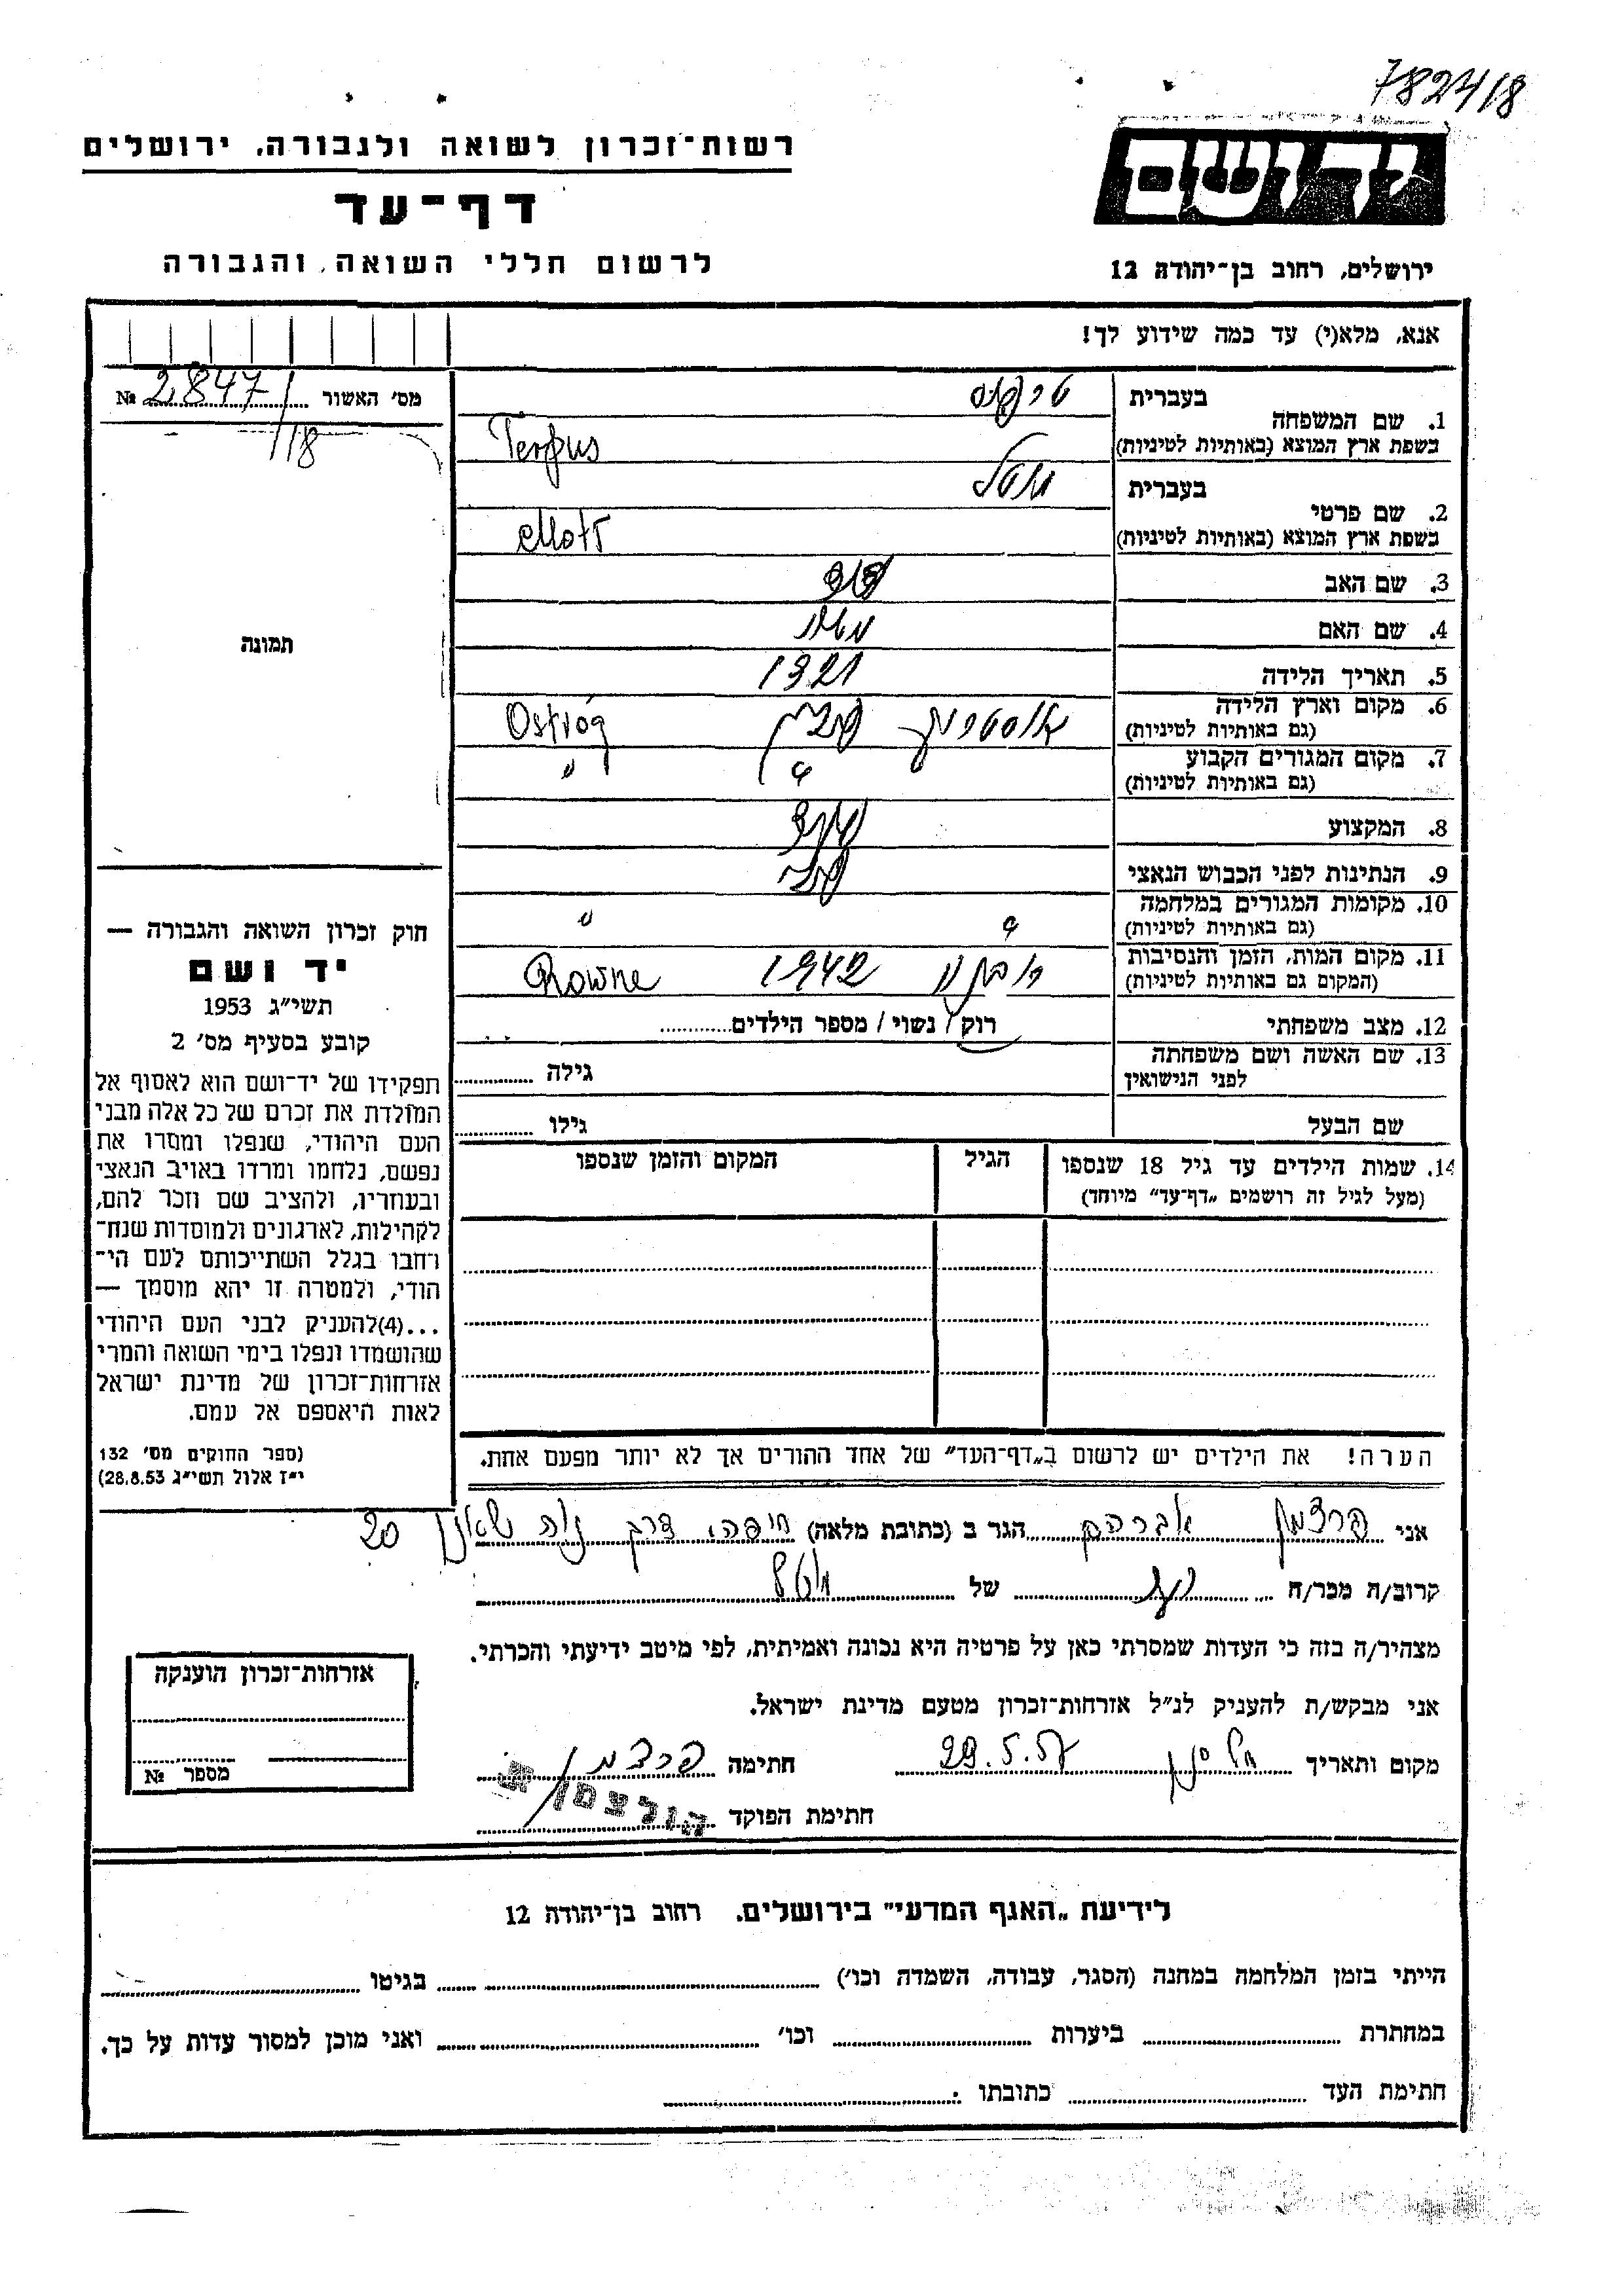 7824/18
ידושם
ירושלים, רחוב בן־יהודה 12
רשות־זכרון לשואה ולגבורה, ירושלים
דף־עד
לרשום חללי השואה והגבורה
אנא, מלא(י) עד כמה שידוע לך!
מס' האשור № 2847/18
תמונה
1. שם המשפחה
בעברית
בשפת ארץ המוצא (באותיות לטיניות) Terpus
2. שם פרטי
בעברית מוטל
בשפת ארץ המוצא (באותיות לטיניות) Motl
3. שם האב
4. שם האם
5. תאריך הלידה 1921
6. מקום וארץ הלידה
(גם באותיות לטיניות) Ostróg
7. מקום המגורים הקבוע
(גם באותיות לטיניות) "
8. המקצוע
9. הנתינות לפני הכבוש הנאצי
10. מקומות המגורים במלחמה
(גם באותיות לטיניות) "
11. מקום המות, הזמן והנסיבות
(המקום גם באותיות לטיניות) 1942 Rowne
12. מצב משפחתי רוק / נשוי / מספר הילדים
13. שם האשה ושם משפחתה
לפני הנישואין גילה
שם הבעל גילו
14. שמות הילדים עד גיל 18 שנספו
(מעל לגיל זה רושמים „דף־עד" מיוחד)
הגיל
המקום והזמן שנספו
חוק זכרון השואה והגבורה —
יד ושם
תשי"ג 1953
קובע בסעיף מס' 2
תפקידו של יד־ושם הוא לאסוף אל
המולדת את זכרם של כל אלה מבני
העם היהודי, שנפלו ומסרו את
נפשם, נלחמו ומרדו באויב הנאצי
ובעוזריו, ולהציב שם וזכר להם,
לקהילות, לארגונים ולמוסדות שנח־
רחבו בגלל השתייכותם לעם הי־
הודי, ולמטרה זו יהא מוסמך —
...(4)להעניק לבני העם היהודי
שהושמדו ונפלו בימי השואה והמרי
אזרחות־זכרון של מדינת ישראל
לאות היאספם אל עמם.
(ספר החוקים מס' 132
י"ז אלול תשי"ג 28.8.53)
הערה! את הילדים יש לרשום ב„דף־העד" של אחד ההורים אך לא יותר מפעם אחת.
אני פרצמן אברהם הגר ב (כתובת מלאה) חיפה, דרך נוה שאנן 20
קרוב/ה מכר/ה של מוטל
מצהיר/ה בזה כי העדות שמסרתי כאן על פרטיה היא נכונה ואמיתית, לפי מיטב ידיעתי והכרתי.
אני מבקש/ת להעניק לנ"ל אזרחות־זכרון מטעם מדינת ישראל.
מקום ותאריך 29.5.57 חתימה פרצמן
חתימת הפוקד
אזרחות־זכרון הוענקה
מספר №
לידיעת „האגף המדעי" בירושלים. רחוב בן־יהודה 12
הייתי בזמן המלחמה במחנה (הסגר, עבודה, השמדה וכו') בגיטו
במחתרת ביערות וכו' ואני מוכן למסור עדות על כך.
חתימת העד כתובתו